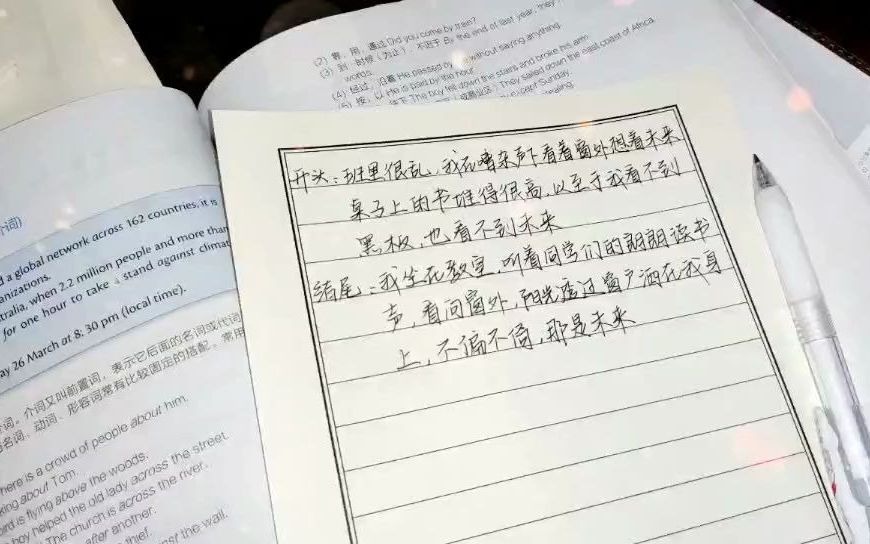 (2) 乘，用，通过 Did you come by train?
(3) 到…时候（为止），不迟于 By the end of last year, they
words.
(4) 经过，沿着 He passed by without saying anything.
(5) 按，以 He is paid by the hour.
The boy fell down the stairs and broke his arm.
They sailed down the east coast of Africa.
except Sunday.
开头：班里很乱，我在嘈杂声下看着窗外想着未来
桌子上的书堆得很高，以至于我看不到
黑板，也看不到未来
结尾：我坐在教室，听着同学们的朗朗读书
声，看向窗外，阳光透过窗户洒在我身
上，不偏不倚，那是未来
d a global network across 162 countries, it is
anizations.
tralia, when 2.2 million people and more than
for one hour to take a stand against climat
ay 26 March at 8:30 pm (local time).
词。介词又叫前置词，表示它后面的名词或代词
名词、动词、形容词常有比较固定的搭配。常用
here is a crowd of people about him.
king about Tom.
ird is flying above the woods.
boy helped the old lady across the street.
The church is across the river.
after another.
thief.
against the wall.